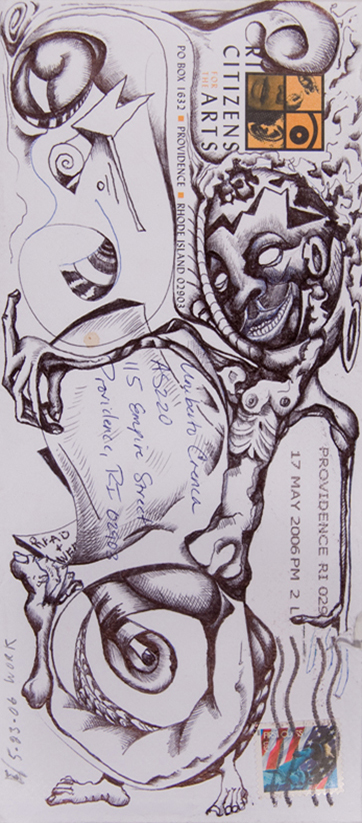 RI
CITIZENS
FOR
THE ARTS
PO BOX 1632 ■ PROVIDENCE ■ RHODE ISLAND 02903
PROVIDENCE RI 029
17 MAY 2006 PM 2 L
Umberto Crenca
AS220
115 Empire Street
Providence, RI 02903
READ
5-25-06 WORK